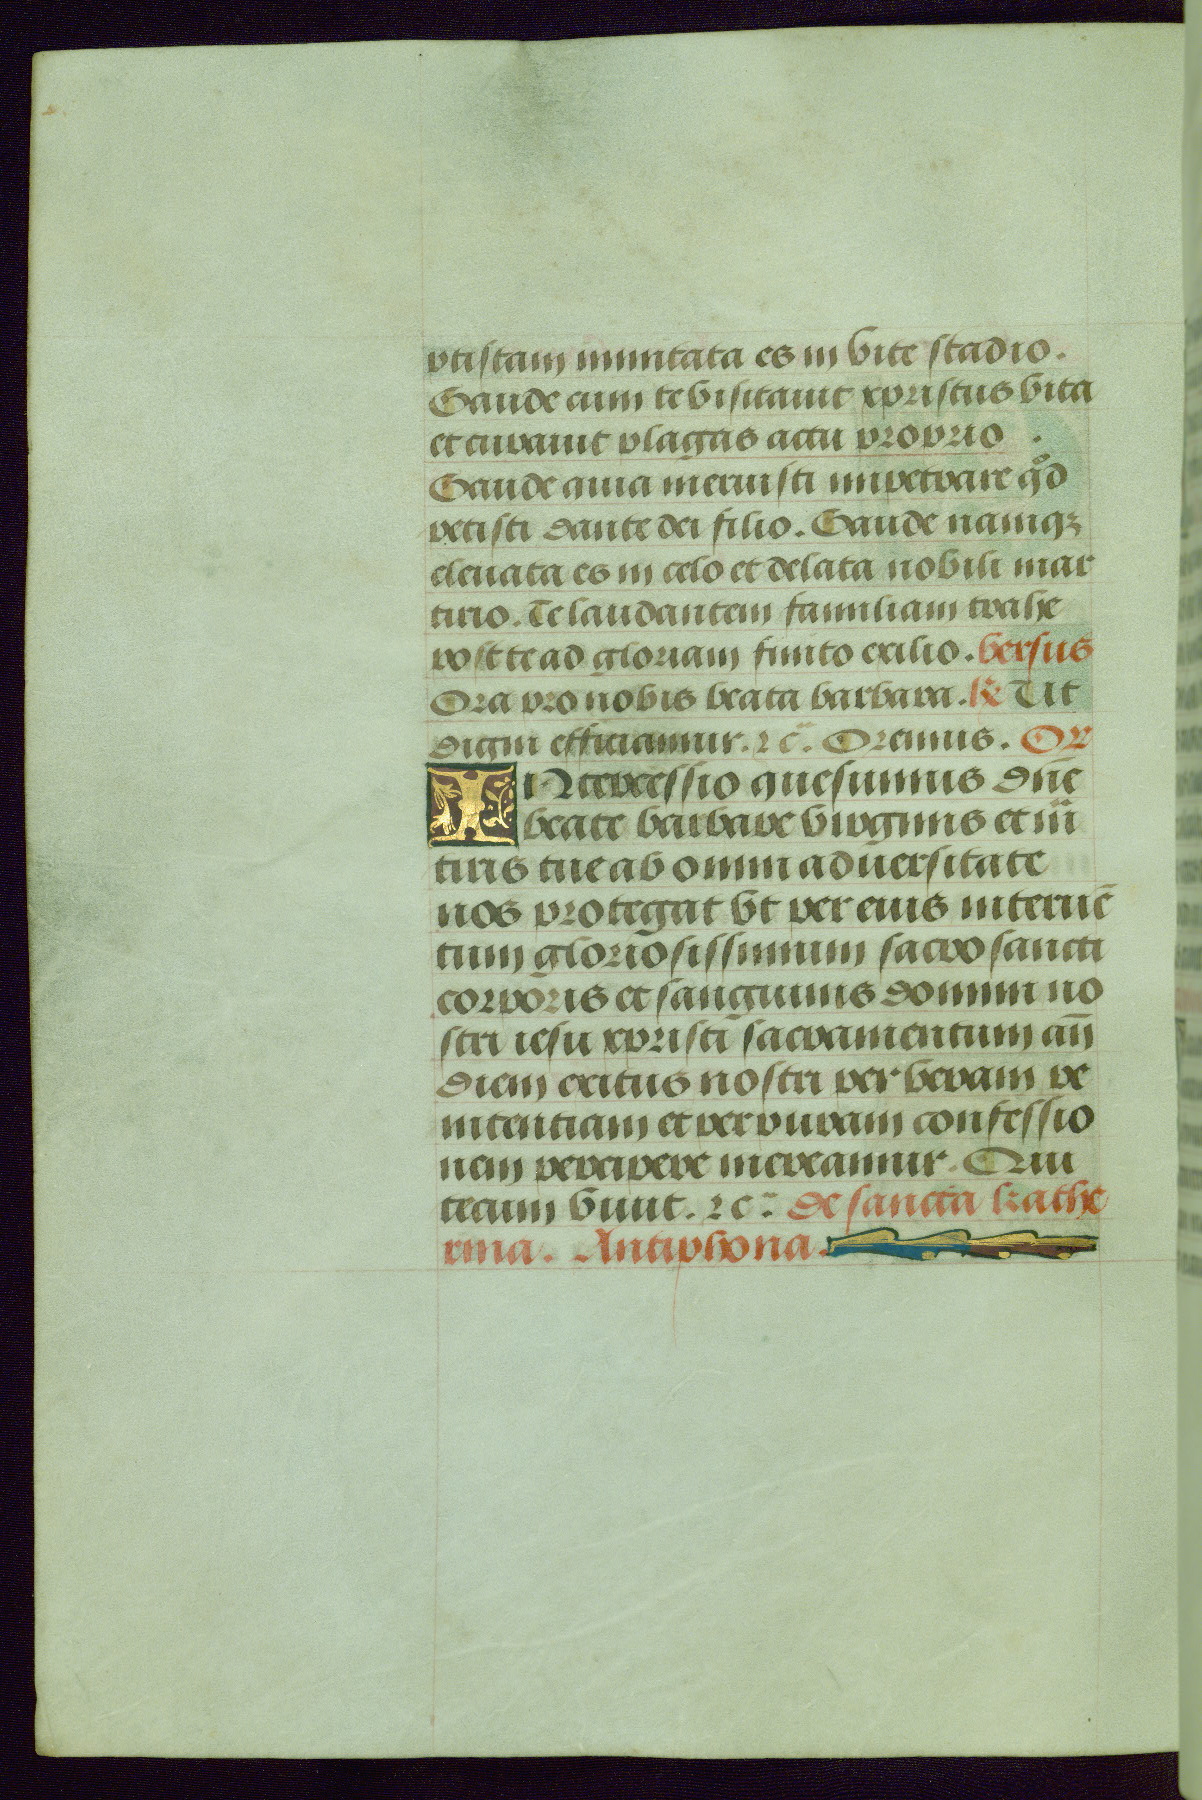 ptistam imintata es in vite stadio.
Gaude cum te visitauit xpristus vita
et curauit plagas actu proprio .
Gaude quia meruisti impetrare qod
petisti dante dei filio. Gaude namqz
eleuata es in celo et delata nobili mar
tirio. Te laudantem familiam trahe
post te ad gloriam finito exilio. versus
Ora pro nobis beata barbara. R Ut
digni efficiamur. zc. Oremus. Or
INtercessio quesumus dn̄e
beate barbare virginis et m̄
tiris tue ab omni aduersitate
nos protegat vt per eius interuē
tum gloriosissimum sacrosancti
corporis et sanguinis domini no
stri iesu xpristi sacramentum an̄
diem exitus nostri per veram pe
nitentiam et per puram confessio
nem percipere mereamur. Qui
tecum viuit. zc. De sancta kathe
rina. Antiphona.